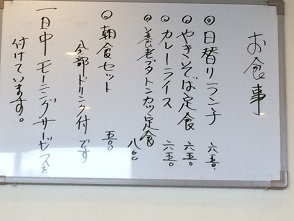 お食事
◎日替りランチ 六五〇
◎やきそば定食 六五〇
◎カレーライス 六五〇
◎養老ブタトンカツ定食 八〇〇
◎朝食セット 五〇
全部ドリンク付です
一日中モーニングサービスを
付けています。